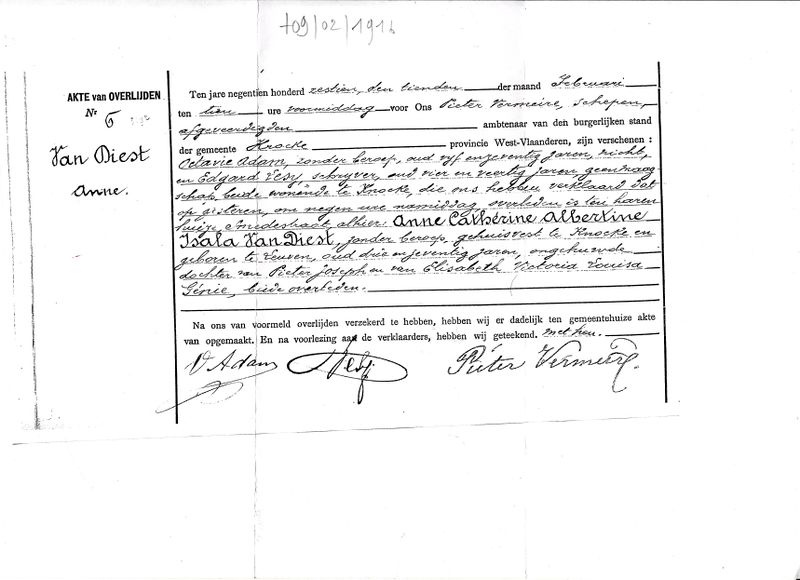 +09/02/1916
AKTE van OVERLIJDEN
Nr 6
Van Diest
Anne.
Ten jare negentien honderd zestien, den tienden der maand Februari
ten tien ure voormiddag voor Ons Pieter Vermeire, schepen,
afgeveerdigden ambtenaar van den burgerlijken stand
der gemeente Knocke provincie West-Vlaanderen, zijn verschenen :
Octavie Adam, zonder beroep, oud vyf en zeventig jaren, nicht,
en Edgard Desy, schryver, oud vier en veertig jaren geen maag-
schap, beide wonende te Knocke, die ons hebben verklaard dat
op gisteren, om negen ure namiddag, overleden is ten haren
huize Smedestraat alhier. Anne Catherine Albertine
Isala Van Diest, zonder beroep, gehuisvest te Knocke en
geboren te Leuven, oud drie en zeventig jaren, ongehuwde
dochter van Pieter Joseph en van Elisabeth Victoria Louisa
Génie, beide overleden.
Na ons van voormeld overlijden verzekerd te hebben, hebben wij er dadelijk ten gemeentehuize akte
van opgemaakt. En na voorlezing aan de verklaarders, hebben wij geteekend. met hen.
O Adam Desy Pieter Vermeire